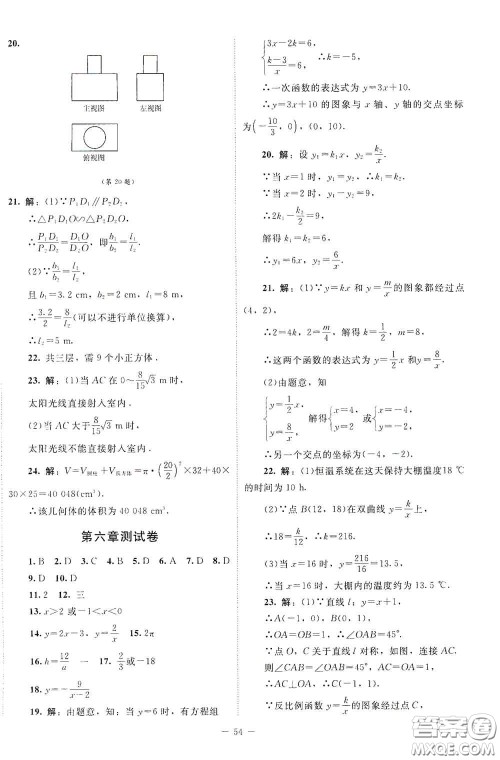 20.
主视图 左视图
俯视图
(第 20 题)
21. 解：(1)∵P₁D₁∥P₂D₂，
∴△P₁D₁O∽△P₂D₂O，
∴P₁D₁/P₂D₂=D₁O/D₂O，即b₁/b₂=l₁/l₂.
(2)∵b₁/b₂=l₁/l₂，
且 b₁=3.2 cm，b₂=2 cm，l₁=8 m，
∴3.2/2=8/l₂(可以不进行单位换算)，
∴l₂=5 m.
22. 共三层，需 9 个小正方体.
23. 解：(1)当 AC 在 0~8/15√3 m 时，
太阳光线直接射入室内.
(2)当 AC 大于8/15√3 m 时，
太阳光线不能直接射入室内.
24. 解：V=V圆柱+V长方体=π·(20/2)²×32+40×
30×25=40 048(cm²).
∴该几何体的体积为 40 048 cm³.
第六章测试卷
1. B 2. D 3. C 4. B 5. D 6. A 7. D 8. D
9. D 10. D
11. 2 12. 三
13. x>2 或-1<x<0
14. y=2x-3，y=2/x 15. 2π
16. h=12/a 一 17. 2或-18
18. y=-9/(x-2)
19. 解：由题意，知当 y=6 时，有方程组
{3x-2k=6，
(k-3)/x=6， ∴k=-5，
∴一次函数的表达式为 y=3x+10.
∴y=3x+10 的图象与 x 轴、y 轴的交点坐标
为(-10/3，0)，(0，10).
20. 解：设 y₁=k₁x，y₂=k₂/x.
∵当 x=1 时，y₁=k₁，y₂=k₂，
∴2k₁-1/2k₂=9，
解得 k₁=6，k₂=6，
∴y₁=6x，y₂=6/x.
21. 解：(1)∵y=kx 和 y=m/x的图象都经过点
(4，2)，
∴2=4k，2=m/4，解得 k=1/2，m=8，
∴这两个函数的表达式为 y=1/2x 和 y=8/x.
(2)由题意，知
{y=1/2x， 解得 {x=4， 或 {x=-4，
y=8/x， y=2 y=-2.
∴另一个交点的坐标为(-4，-2).
22. 解：(1)恒温系统在这天保持大棚温度18 ℃
的时间为 10 h.
(2)∵点 B(12，18)在双曲线 y=k/x上，
∴18=k/12，∴k=216.
(3)当 x=16 时，y=216/16=13.5，
∴当 x=16 时，大棚内的温度约为 13.5 ℃.
23. 解：(1)∵直线 l：y=x+1，
∴A(-1，0)，B(0，1)，
∴OA=OB=1，∠OAB=45°.
∵点 O，C 关于直线 l 对称，如图，
则∠CAB=∠OAB=45°，
∴AC⊥OA，∴C(-1，1).
∵反比例函数 y=k/x的图象经过点 C，
— 54 —
答案圈
MXQE.COM